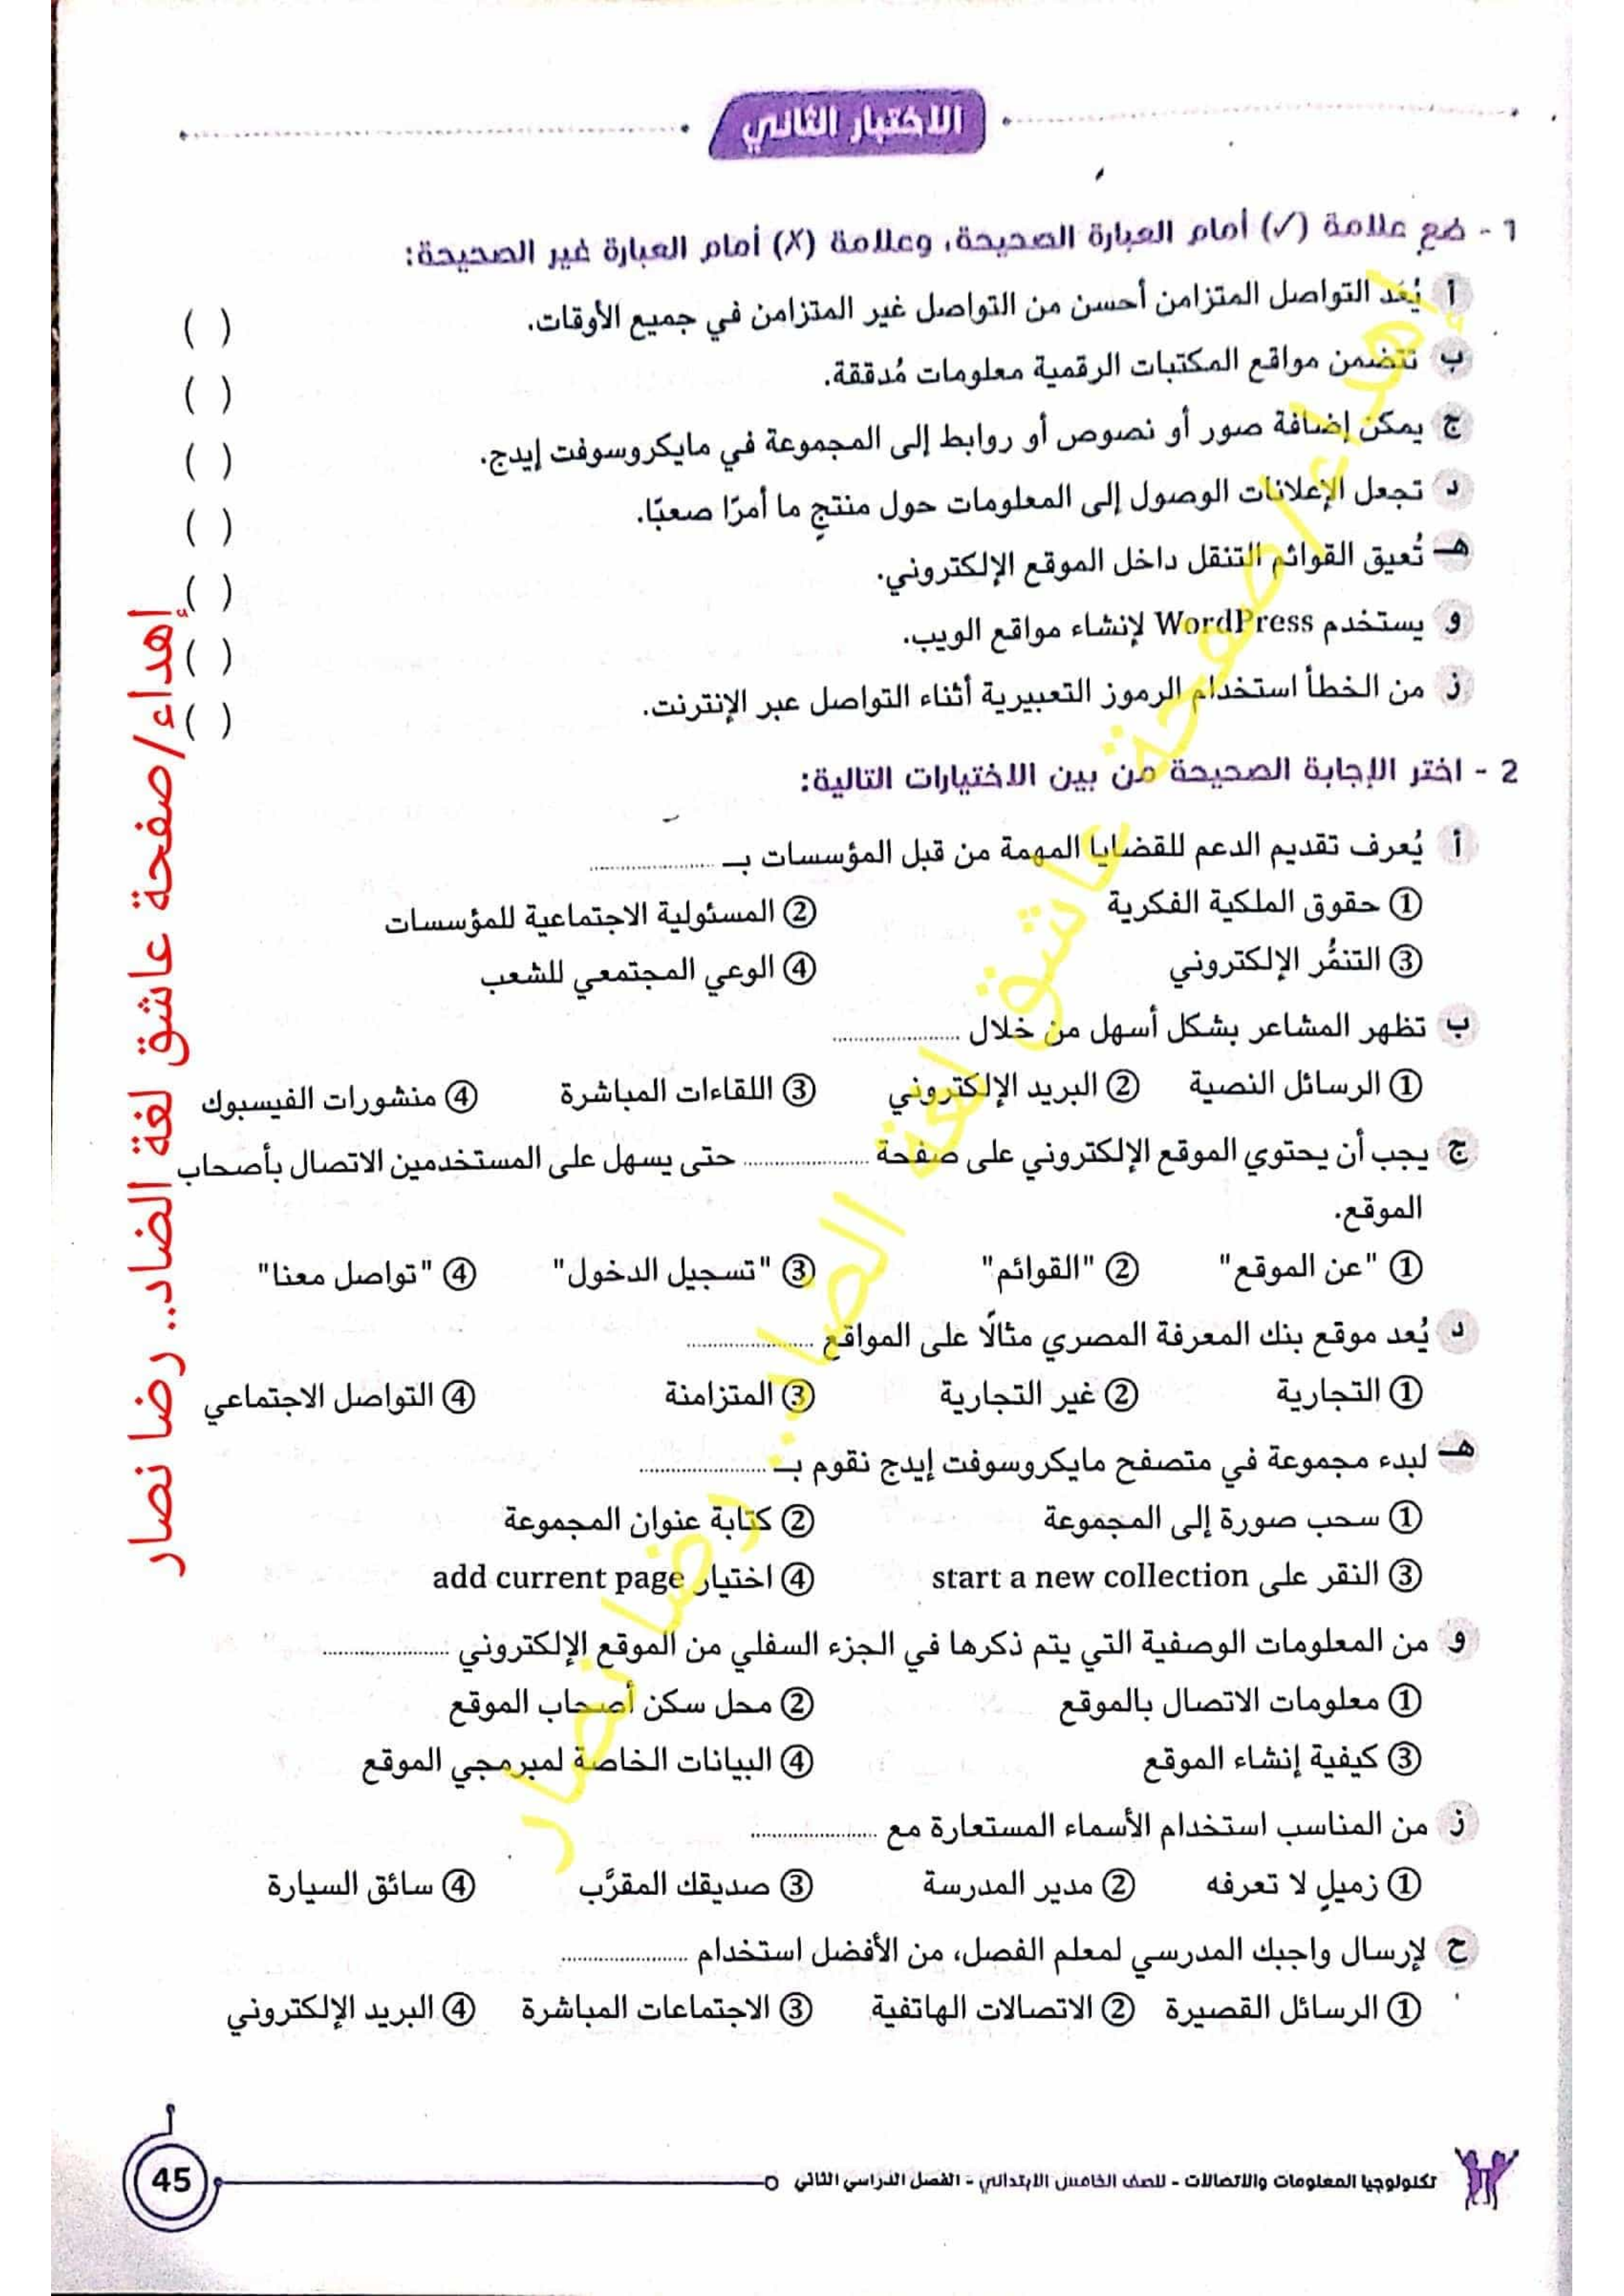 الاختبار الثاني
1 - ضع علامة (✓) أمام العبارة الصحيحة، وعلامة (✗) أمام العبارة غير الصحيحة:
أ يُعَد التواصل المتزامن أحسن من التواصل غير المتزامن في جميع الأوقات. ( )
ب تتضمن مواقع المكتبات الرقمية معلومات مُدققة. ( )
ج يمكن إضافة صور أو نصوص أو روابط إلى المجموعة في مايكروسوفت إيدج. ( )
د تجعل الإعلانات الوصول إلى المعلومات حول منتجٍ ما أمرًا صعبًا. ( )
هـ تُعيق القوائم التنقل داخل الموقع الإلكتروني. ( )
و يستخدم WordPress لإنشاء مواقع الويب. ( )
ز من الخطأ استخدام الرموز التعبيرية أثناء التواصل عبر الإنترنت. ( )
2 - اختر الإجابة الصحيحة من بين الاختيارات التالية:
أ يُعرف تقديم الدعم للقضايا المهمة من قبل المؤسسات بـ ....................
① حقوق الملكية الفكرية ② المسئولية الاجتماعية للمؤسسات
③ التنمُّر الإلكتروني ④ الوعي المجتمعي للشعب
ب تظهر المشاعر بشكل أسهل من خلال ....................
① الرسائل النصية ② البريد الإلكتروني ③ اللقاءات المباشرة ④ منشورات الفيسبوك
ج يجب أن يحتوي الموقع الإلكتروني على صفحة .................... حتى يسهل على المستخدمين الاتصال بأصحاب
الموقع.
① "عن الموقع" ② "القوائم" ③ "تسجيل الدخول" ④ "تواصل معنا"
د يُعد موقع بنك المعرفة المصري مثالًا على المواقع ....................
① التجارية ② غير التجارية ③ المتزامنة ④ التواصل الاجتماعي
هـ لبدء مجموعة في متصفح مايكروسوفت إيدج نقوم بـ ....................
① سحب صورة إلى المجموعة ② كتابة عنوان المجموعة
③ النقر على start a new collection ④ اختيار add current page
و من المعلومات الوصفية التي يتم ذكرها في الجزء السفلي من الموقع الإلكتروني ....................
① معلومات الاتصال بالموقع ② محل سكن أصحاب الموقع
③ كيفية إنشاء الموقع ④ البيانات الخاصة لمبرمجي الموقع
ز من المناسب استخدام الأسماء المستعارة مع ....................
① زميلٍ لا تعرفه ② مدير المدرسة ③ صديقك المقرَّب ④ سائق السيارة
ح لإرسال واجبك المدرسي لمعلم الفصل، من الأفضل استخدام ....................
① الرسائل القصيرة ② الاتصالات الهاتفية ③ الاجتماعات المباشرة ④ البريد الإلكتروني
تكنولوجيا المعلومات والاتصالات - للصف الخامس الابتدائي - الفصل الدراسي الثاني
45
إهداء/صفحة عاشق لغة الضاد.. رضا نصار
إهداء/صفحة عاشق لغة الضاد.. رضا نصار